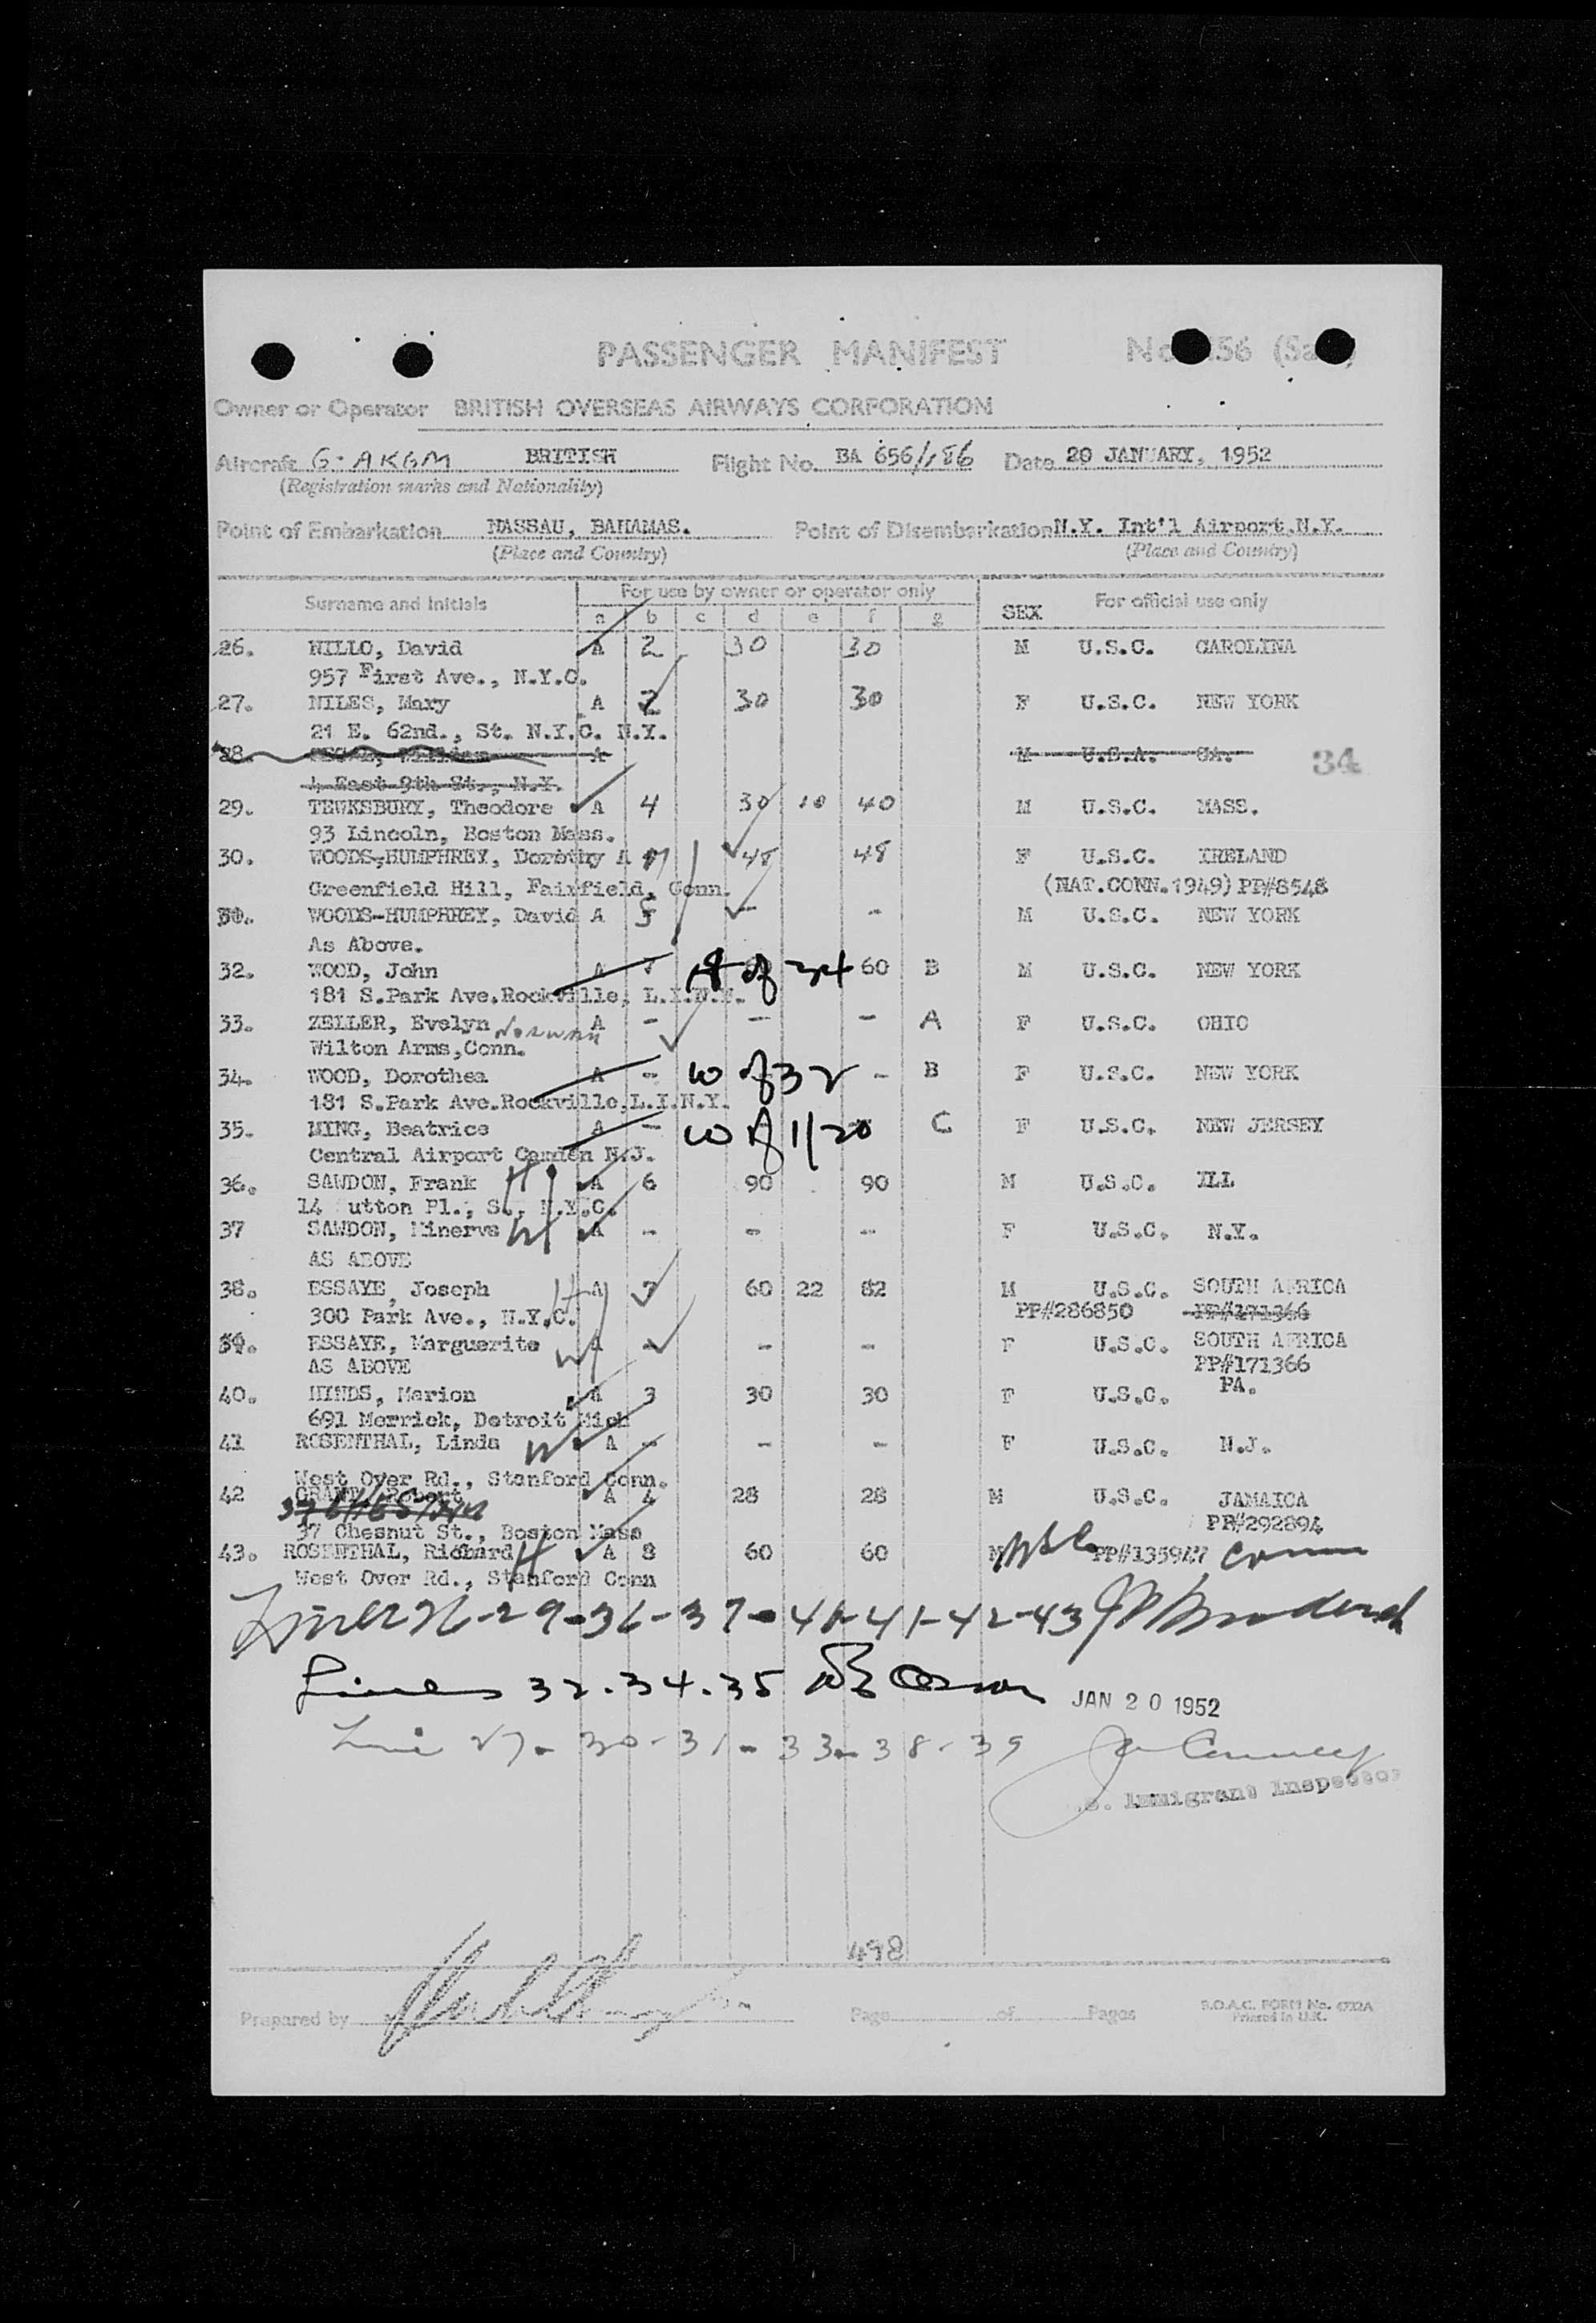 PASSENGER MANIFEST No 156
Owner or Operator BRITISH OVERSEAS AIRWAYS CORPORATION
Aircraft G-AKGM BRITISH Flight No. BA 656/186 Date 20 JANUARY, 1952
(Registration marks and Nationality)
Point of Embarkation NASSAU, BAHAMAS. Point of Disembarkation N.Y. Int'l Airport, N.Y.
(Place and Country) (Place and Country)
Surname and Initials For use by owner or operator only SEX For official use only
a b c d e f g
26. NILLO, David A 2 30 30 M U.S.C. CAROLINA
957 First Ave., N.Y.C.
27. NILES, Mary A 2 30 30 F U.S.C. NEW YORK
21 E. 62nd., St. N.Y.C. N.Y.
28. William A M U.S.A. GA. 34
4 East 9th St., N.Y.
29. TEWKSBURY, Theodore A 4 30 10 40 M U.S.C. MASS.
93 Lincoln, Boston Mass.
30. WOODS-HUMPHREY, Dorothy A 48 48 F U.S.C. IRELAND
Greenfield Hill, Fairfield, Conn. (NAT.CONN.1949) PP#8548
31. WOODS-HUMPHREY, David A 5 - - M U.S.C. NEW YORK
As Above.
32. WOOD, John A 7 H of 34 60 B M U.S.C. NEW YORK
181 S.Park Ave.Rockville, L.I.N.Y.
33. ZELLER, Evelyn Norwen A - - - A F U.S.C. OHIO
Wilton Arms,Conn.
34. WOOD, Dorothea A - W of 32 - B F U.S.C. NEW YORK
181 S.Park Ave.Rockville,L.I.N.Y.
35. MING, Beatrice A - W of 1/20 C F U.S.C. NEW JERSEY
Central Airport Camden N.J.
36. SAWDON, Frank H A 6 90 90 M U.S.C. ILL
14 utton Pl., S., N.Y.C.
37 SAWDON, Minerva W A - - - F U.S.C. N.Y.
AS ABOVE
38. ESSAYE, Joseph H A 7 60 22 82 M U.S.C. SOUTH AFRICA
300 Park Ave., N.Y.C. PP#286850 PP#171366
39. ESSAYE, Marguerite W A - - - F U.S.C. SOUTH AFRICA
AS ABOVE PP#171366
40. HINDS, Marion A 3 30 30 F U.S.C. PA.
691 Merrick, Detroit Mich
41 ROSENTHAL, Linda W A - - - F U.S.C. N.J.
West Over Rd., Stanford Conn.
42 GRANT, Robert A 4 28 28 M U.S.C. JAMAICA
37 Chesnut St., Boston Mass PP#292894
43. ROSENTHAL, Richard H A 8 60 60 M PP#135947 Conn
West Over Rd., Stanford Conn
Lines 26-29-36-37-40-41-42-43
Lines 32.34.35 JAN 20 1952
Line 27-30-31-33-38-39
S. Immigrant Inspector
498
Prepared by Page of Pages B.O.A.C. FORM No. 4722A
Printed in U.K.